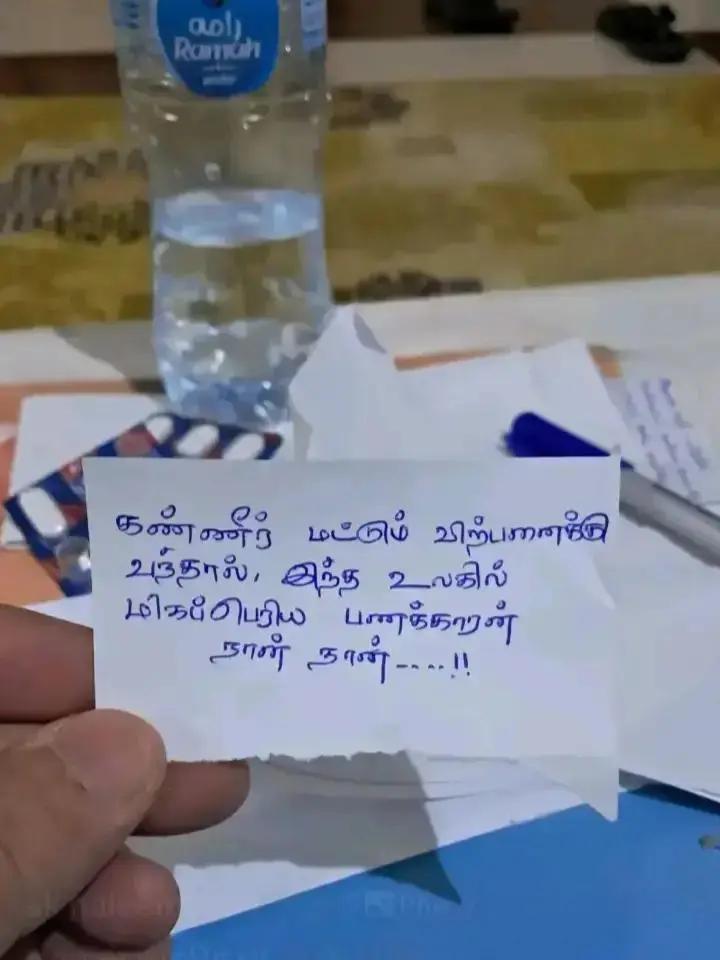 رامه
Ramah
கண்ணீர் மட்டும் விற்பனைக்கு
வந்தால், இந்த உலகில்
மிகப்பெரிய பணக்காரன்
நான் தான்-....!!